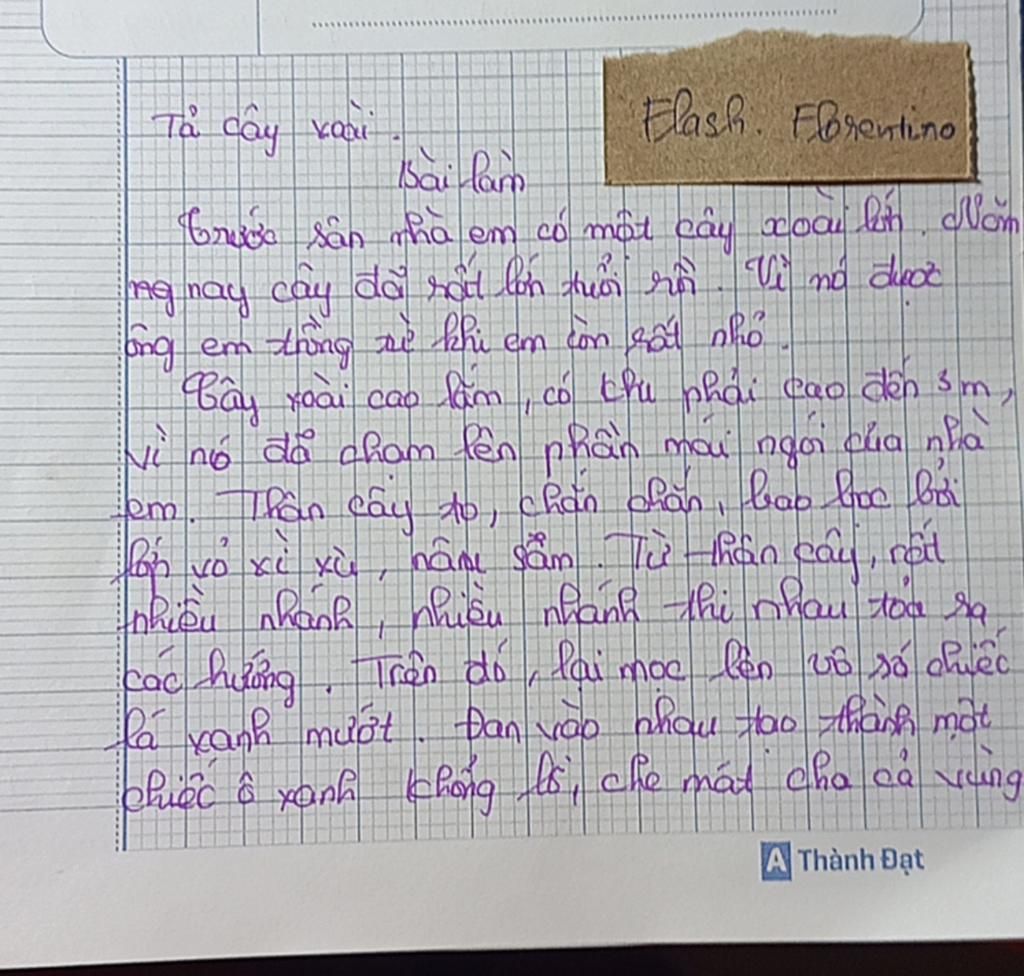 Tả cây xoài.
Flash. Florentino
Bài làm
Trước sân nhà em có một cây xoài lớn. Năm
nay cây đã rất lớn tuổi rồi. Vì nó được
ông em trồng từ khi em còn rất nhỏ.
Cây xoài cao lắm, có thu phải cao đến 3m,
vì nó đã chạm lên phần mái ngói của nhà
em. Thân cây to, chắn chắn, bao bọc bởi
lớp vỏ xì xù, nâm sẫm. Từ thân cây, rất
nhiều nhánh, nhiều nhánh thi nhau tỏa ra
các hướng. Trên đó, lại mọc lên vô số chiếc
lá xanh mướt. Đan vào nhau tạo thành một
chiếc ô xanh khổng lồ, che mát cha cả vùng
A Thành Đạt